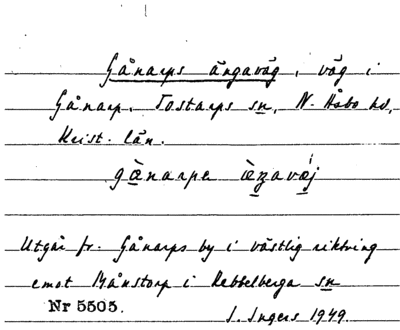 Gånarps ängaväg, väg i
Gånarp, Tostarps sn, N. Åsbo hd,
Krist. län.
gænarps
Utgår fr. Gånarps by i västlig riktning
emot Månstorp i Rebbelberga sn
Nr 5505.
I. Ingers 1949.